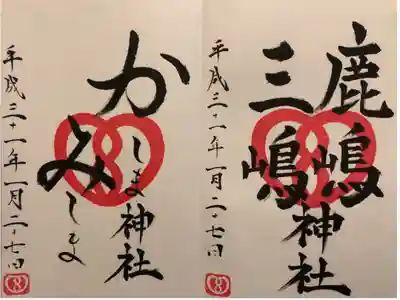 鹿嶋神社
三嶋
平成三十一年一月二十七日
かしま神社
みしま
平成三十一年一月二十七日